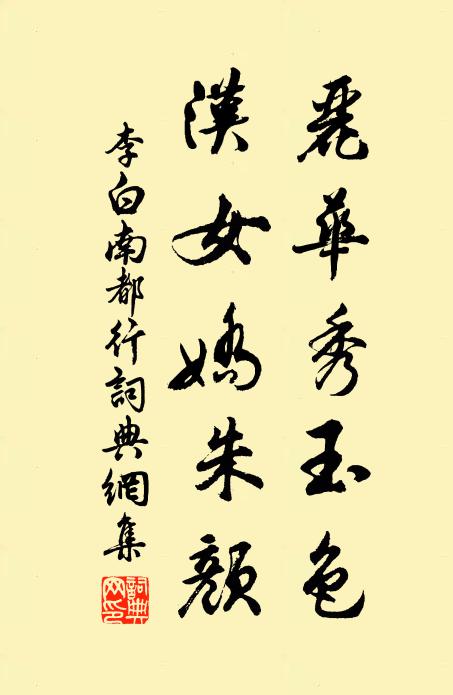 麗華秀玉色
漢女嬌朱顏
李白南都行詞典網集
詞典網印